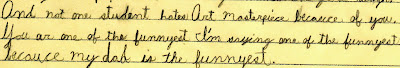 And not one student hates Art Masterpiece becauce of you.
You are one of the funnyest I'm saying one of the funnyest
becauce my dad is the funnyest.